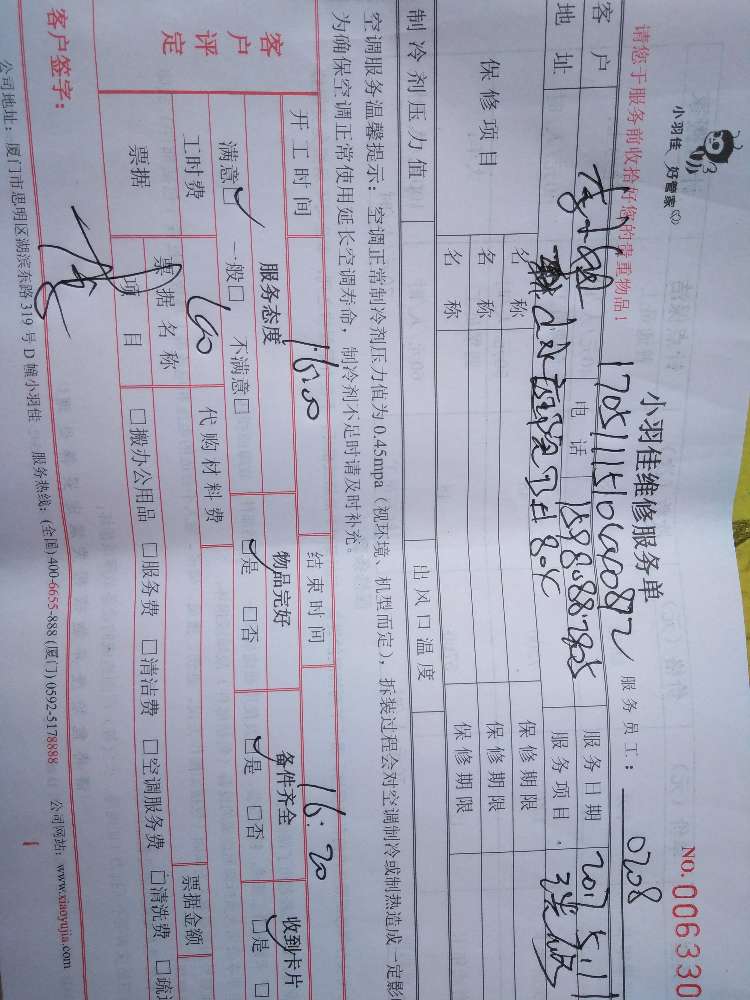 小羽佳 好管家
小羽佳维修服务单
NO.006330
请您于服务前收拾好您的贵重物品！
170511151000082
服务员工： 0208
客户
电话
服务日期 2017.5.11
地址
服务项目
保修项目
名称
保修期限
名称
保修期限
名称
保修期限
制冷剂压力值
出风口温度
空调服务温馨提示：空调正常制冷剂压力值为 0.45mpa（视环境、机型而定），拆装过程会对空调制冷或制热造成一定影
为确保空调正常使用延长空调寿命，制冷剂不足时请及时补充。
开工时间 16:00 结束时间 16:20
客户评定
服务态度 物品完好 备件齐全 收到卡片
满意□ 一般□ 不满意□ □是 □否 □是 □否 □是 □
工时费 100 代购材料费
票据
票据名称
票据金额
项目 □搬办公用品 □服务费 □清洁费 □空调服务费 □清洗费 □疏
客户签字：
公司地址：厦门市思明区湖滨东路 319 号 D 幢小羽佳 服务热线：(全国)400-6655-888 (厦门) 0592-5178888 公司网站：www.xiaoyujia.com